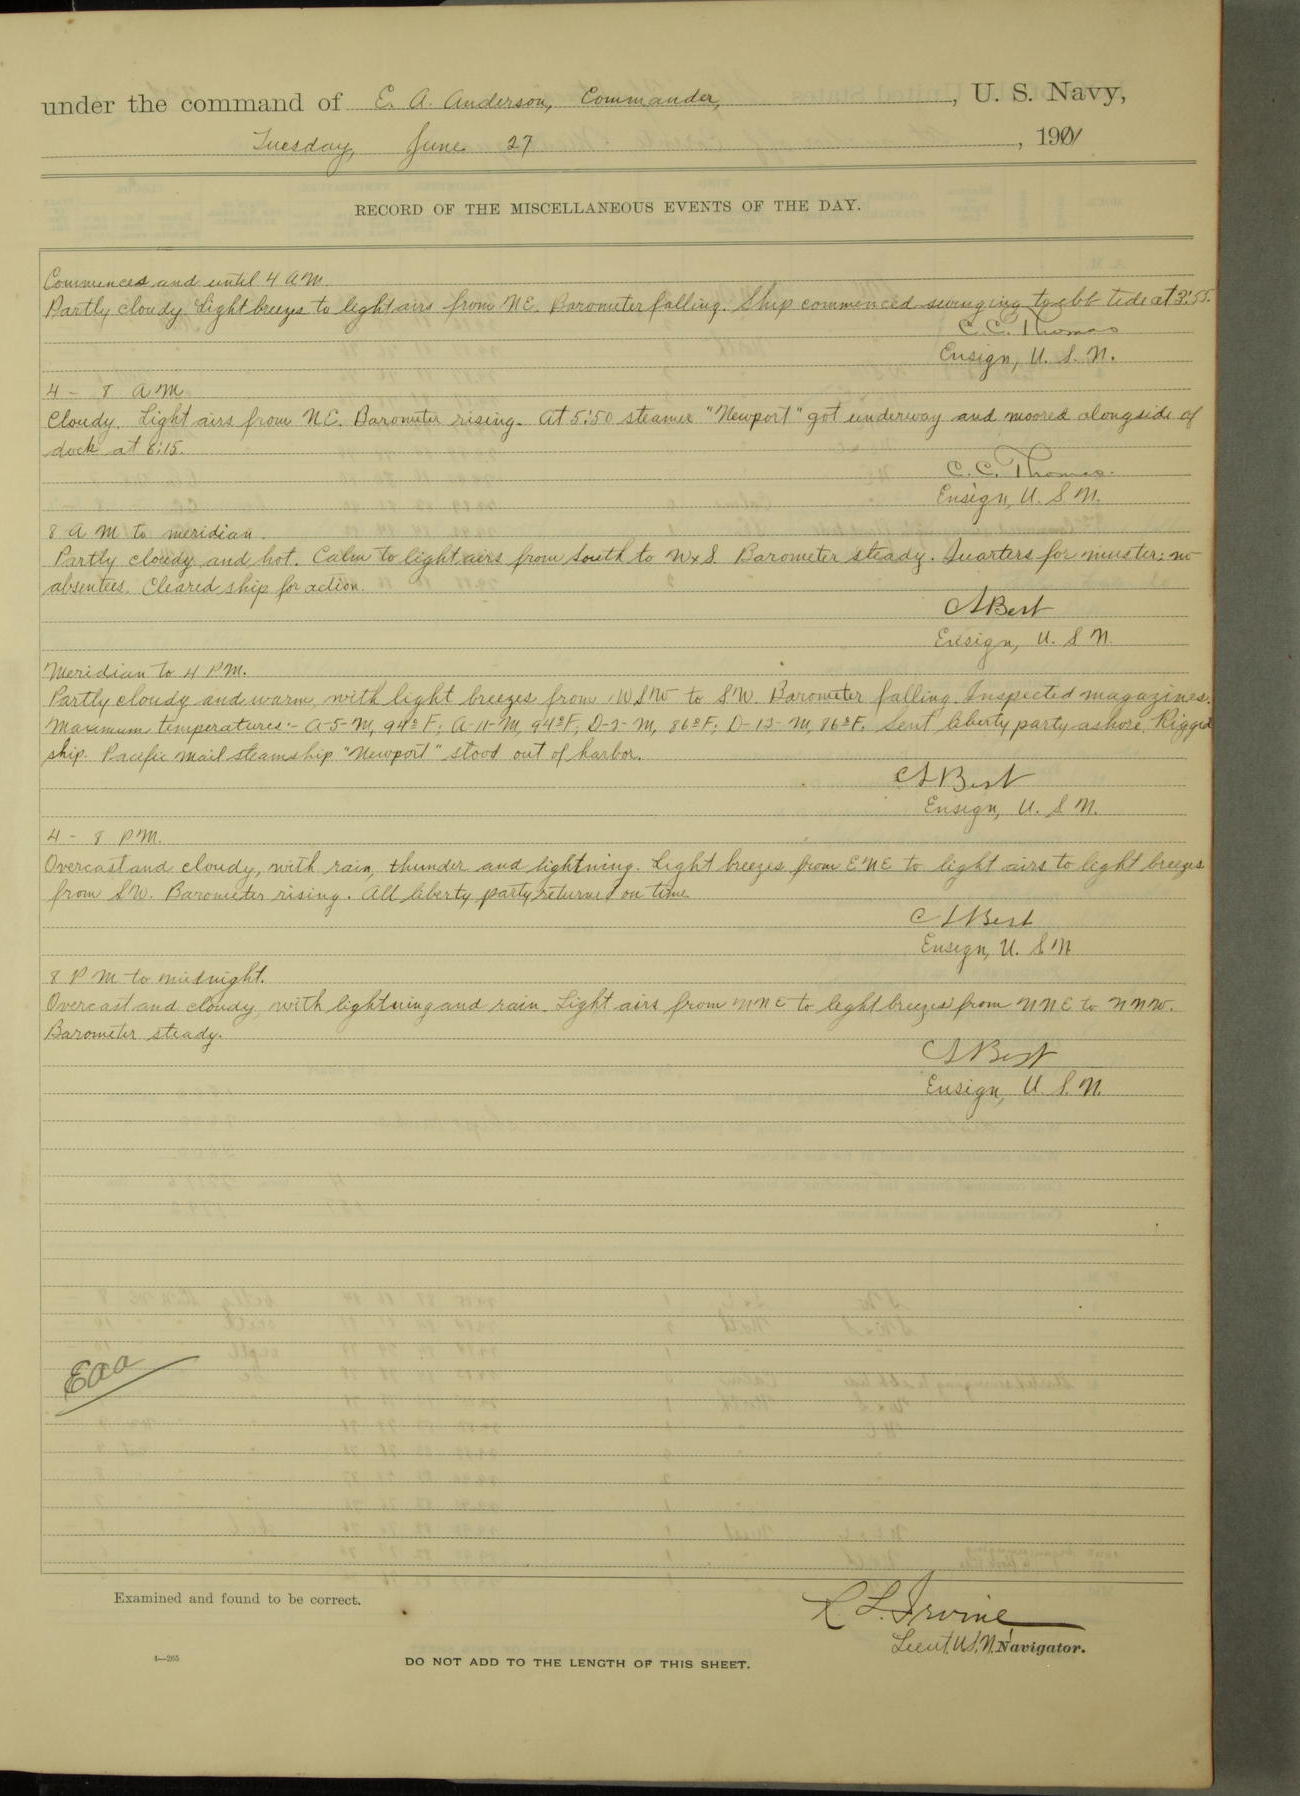 under the command of E. A. Anderson, Commander, , U. S. Navy,
Tuesday, June 27 , 1911
RECORD OF THE MISCELLANEOUS EVENTS OF THE DAY.
Commences and until 4 A M.
Partly cloudy. Light breezes to light airs from NE. Barometer falling. Ship commenced swinging to ebb tide at 3:55.
C. C. Thomas
Ensign, U. S. N.
4 - 8 A M
Cloudy. Light airs from NE. Barometer rising. At 5:50 steamer "Newport" got underway and moored alongside of
dock at 6:15.
C. C. Thomas.
Ensign, U. S N.
8 A M to meridian.
Partly cloudy and hot. Calm to light airs from South to WxS. Barometer steady. Quarters for muster; no
absentees. Cleared ship for action.
C L Best
Ensign, U. S N.
Meridian to 4 P M.
Partly cloudy and warm, with light breezes from WSW to SW. Barometer falling. Inspected magazines.
Maximum temperatures:- A-5-M, 94° F; A-11-M, 94° F; D-2-M, 86° F; D-13-M, 86° F. Sent liberty party ashore. Rigged
ship. Pacific Mail steamship "Newport" stood out of harbor.
C L Best
Ensign, U. S N.
4 - 8 P M.
Overcast and cloudy, with rain, thunder and lightning. Light breezes from ENE to light airs to light breezes
from SW. Barometer rising. All liberty party returned on time
C L Best
Ensign, U. S N
8 P M to midnight.
Overcast and cloudy, with lightning and rain. Light airs from NNE to light breezes from NNE to NNW.
Barometer steady.
C L Best
Ensign, U. S. N.
Eaa
Examined and found to be correct.
R L. Irvine
Lieut. U.S.N. Navigator.
4—265
DO NOT ADD TO THE LENGTH OF THIS SHEET.